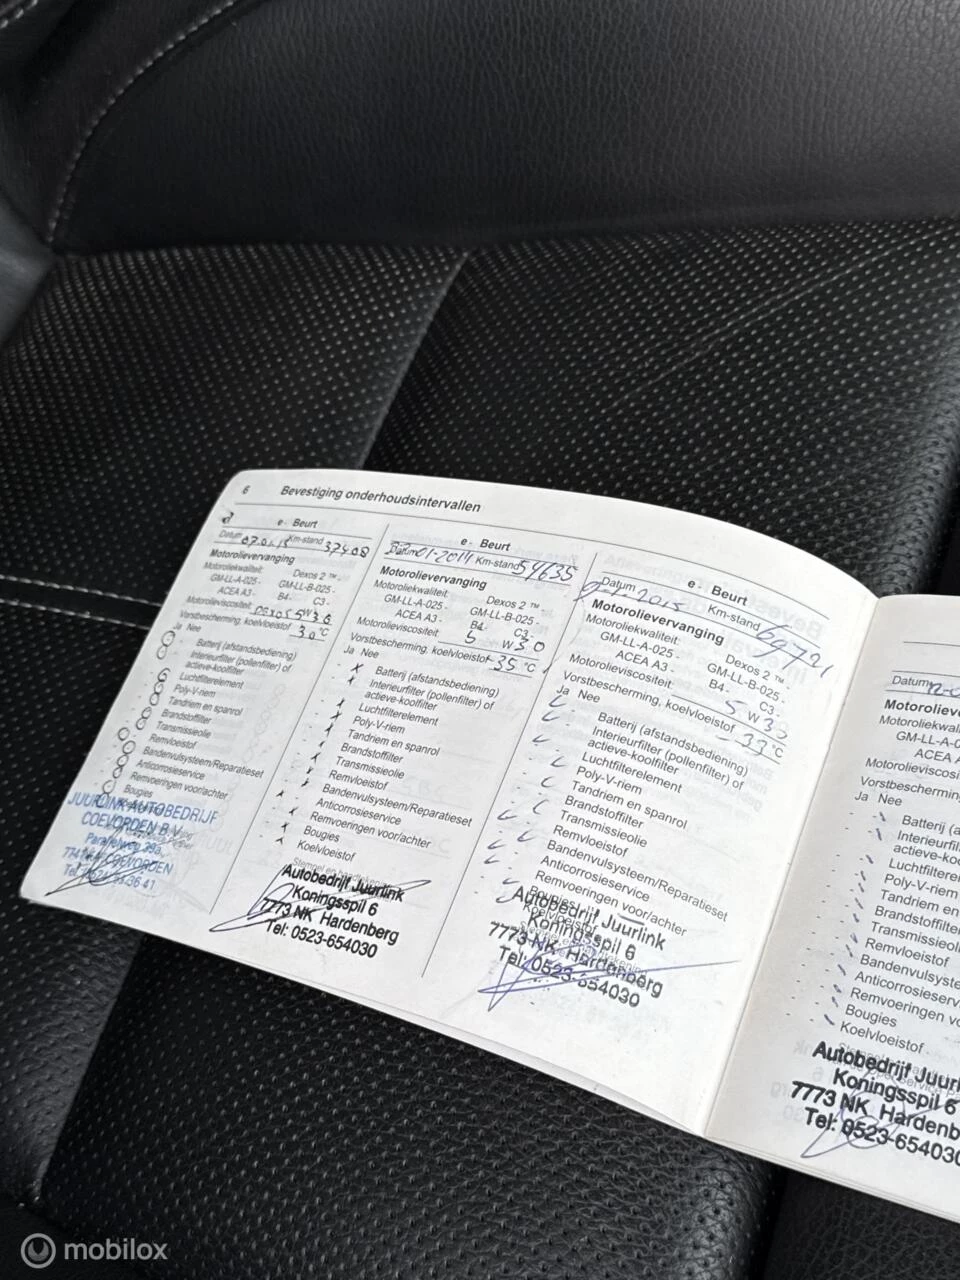 6 Bevestiging onderhoudsintervallen
e - Beurt
Datum 07.01.13 Km-stand 37408
Motorolievervanging
Motoroliekwaliteit: Dexos 2 ™ -
GM-LL-A-025 - GM-LL-B-025 -
ACEA A3 - B4 - C3 -
Motorolieviscositeit 5 W 30
Vorstbescherming, koelvloeistof 30 °C
Ja Nee
Batterij (afstandsbediening)
Interieurfilter (pollenfilter) of
actieve-koolfilter
Luchtfilterelement
Poly-V-riem
Tandriem en spanrol
Brandstoffilter
Transmissieolie
Remvloeistof
Bandenvulsysteem/Reparatieset
Anticorrosieservice
Remvoeringen voor/achter
Bougies
JUURLINK AUTOBEDRIJF
COEVORDEN B.V.
COEVORDEN
e - Beurt
Datum 01-2014 Km-stand 54635
Motorolievervanging
Motoroliekwaliteit: Dexos 2 ™ -
GM-LL-A-025 - GM-LL-B-025 -
ACEA A3 - B4 - C3 -
Motorolieviscositeit 5 W 30
Vorstbescherming, koelvloeistof -35 °C
Ja Nee
Batterij (afstandsbediening)
Interieurfilter (pollenfilter) of
actieve-koolfilter
Luchtfilterelement
Poly-V-riem
Tandriem en spanrol
Brandstoffilter
Transmissieolie
Remvloeistof
Bandenvulsysteem/Reparatieset
Anticorrosieservice
Remvoeringen voor/achter
Bougies
Koelvloeistof
Autobedrijf Juurlink
Koningsspil 6
7773 NK Hardenberg
Tel: 0523-654030
e - Beurt
Datum 2015 Km-stand 69721
Motorolievervanging
Motoroliekwaliteit: Dexos 2 ™ -
GM-LL-A-025 - GM-LL-B-025 -
ACEA A3 - B4 - C3 -
Motorolieviscositeit 5 W 30
Vorstbescherming, koelvloeistof -33 °C
Ja Nee
Batterij (afstandsbediening)
Interieurfilter (pollenfilter) of
actieve-koolfilter
Luchtfilterelement
Poly-V-riem
Tandriem en spanrol
Brandstoffilter
Transmissieolie
Remvloeistof
Bandenvulsysteem/Reparatieset
Anticorrosieservice
Remvoeringen voor/achter
Bougies
Koelvloeistof
Autobedrijf Juurlink
Koningsspil 6
7773 NK Hardenberg
Tel: 0523-654030
Datum
Motorolieve
Motoroliekwali
GM-LL-A
ACEA A
Motorolieviscos
Vorstbescherming
Ja Nee
Batterij (a
Interieurfi
actieve-ko
Luchtfilter
Poly-V-rie
Tandriem e
Brandstoffil
Transmissieo
Remvloeistof
Bandenvulsyste
Anticorrosieserv
Remvoeringen vo
Bougies
Koelvloeistof
Autobedrijf Juurli
Koningsspil 6
7773 NK Hardenb
Tel: 0523-654030
mobilox